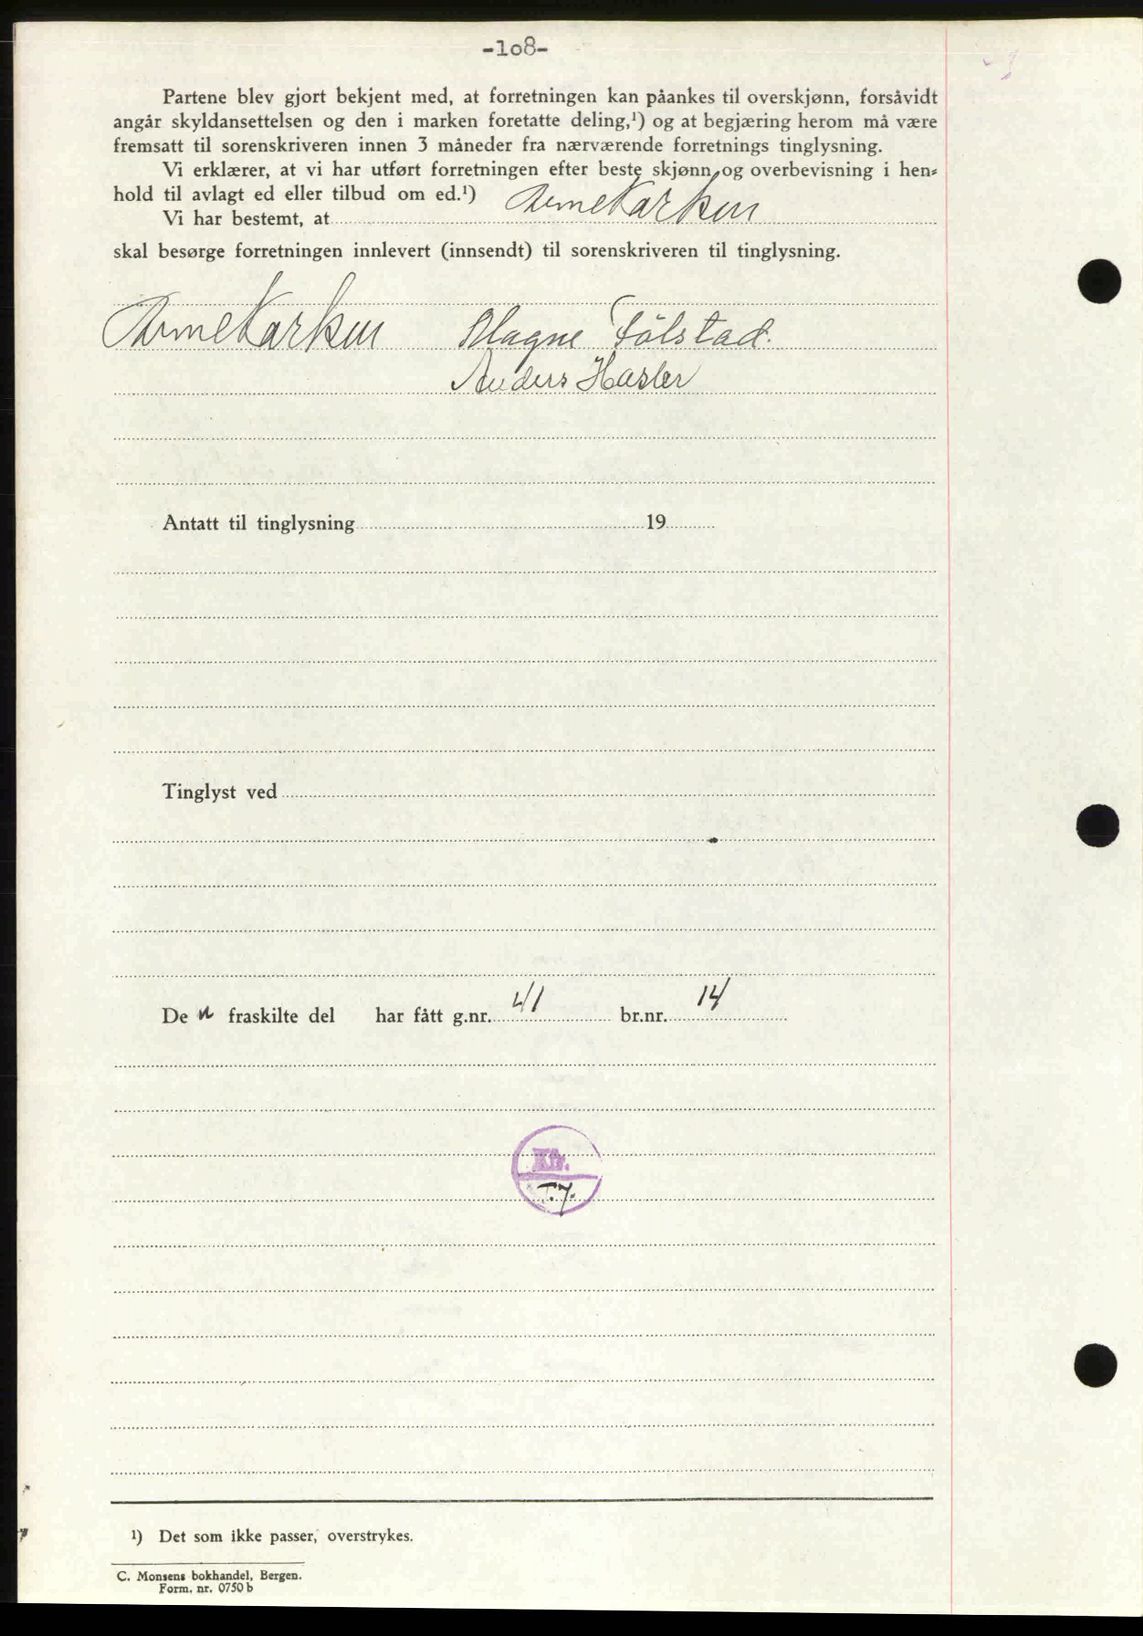 -108-
Partene blev gjort bekjent med, at forretningen kan påankes til overskjønn, forsåvidt
angår skyldansettelsen og den i marken foretatte deling,¹) og at begjæring herom må være
fremsatt til sorenskriveren innen 3 måneder fra nærværende forretnings tinglysning.
Vi erklærer, at vi har utført forretningen efter beste skjønn og overbevisning i hen=
hold til avlagt ed eller tilbud om ed.¹)
Vi har bestemt, at Arne Karken
skal besørge forretningen innlevert (innsendt) til sorenskriveren til tinglysning.
Arne Karken Magne Følstad.
Anders Hasler
Antatt til tinglysning 19
Tinglyst ved
De n fraskilte del har fått g.nr. 41 br.nr. 14
Kfr.
T.J.
¹) Det som ikke passer, overstrykes.
C. Monsens bokhandel, Bergen.
Form. nr. 0750 b